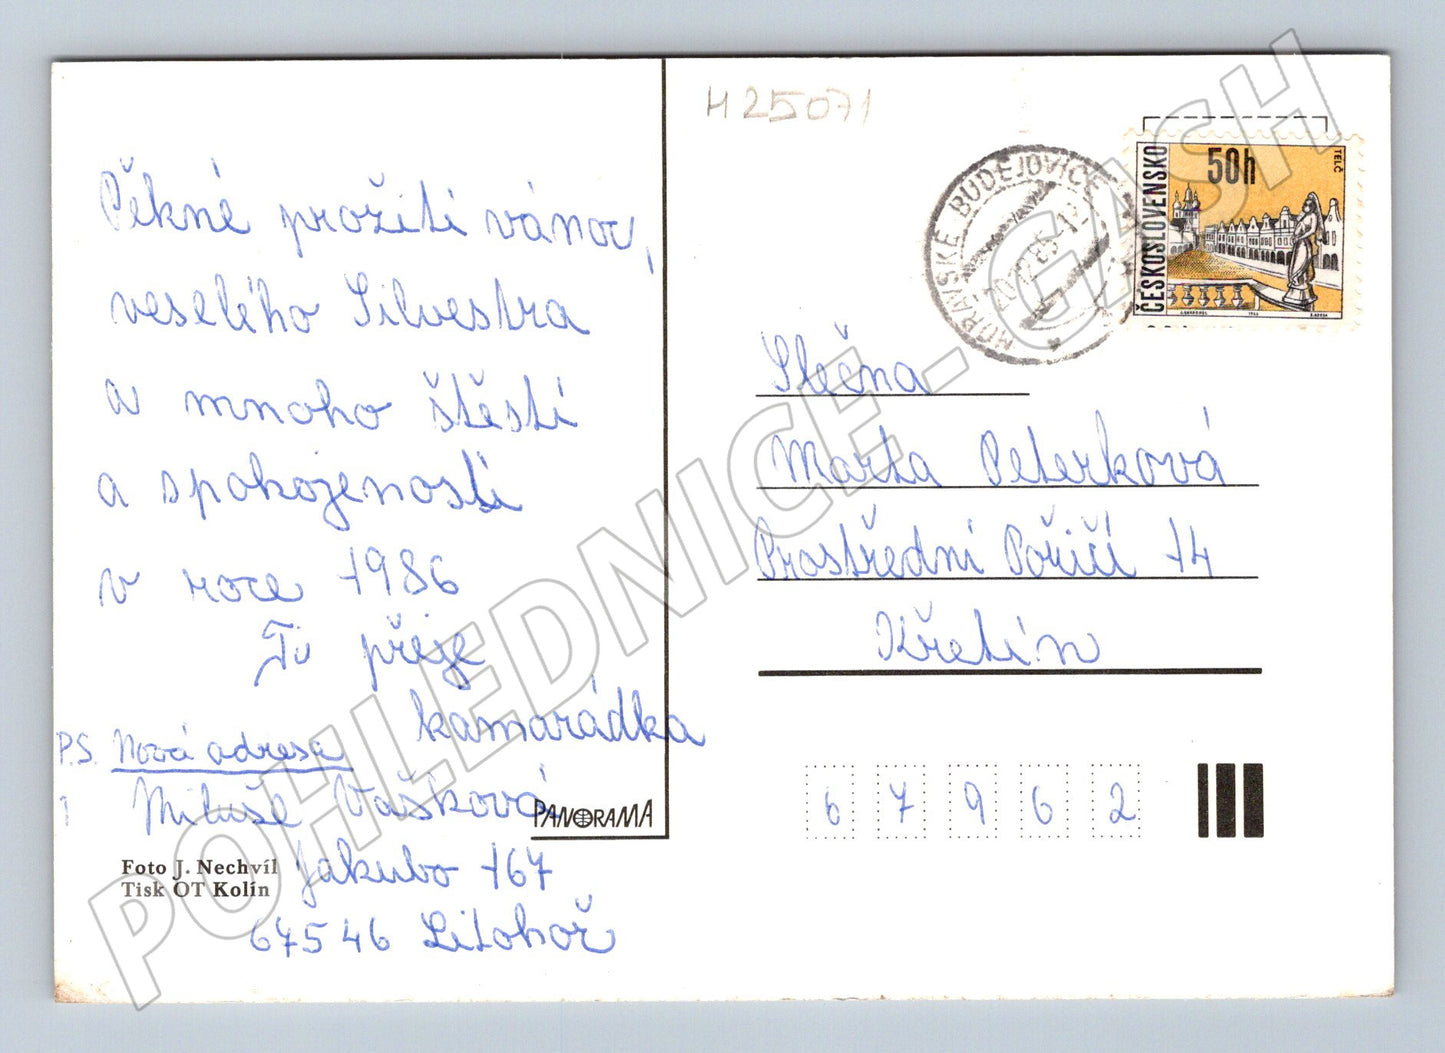 H25071
Pěkné prožití vánoc,
veselého Silvestra
a mnoho štěstí
a spokojenosti
v roce 1986
Ti přeje
kamarádka
P.S. Nová adresa
Miluše Vašková
Jakubo 167
67546 Litohoř
PANORAMA
Foto J. Nechvíl
Tisk OT Kolín
MORAVSKÉ BUDĚJOVICE
ČESKOSLOVENSKO
50h
TELČ
1966
Slečna
Marta Peterková
Prostřední Poříčí 14
Křetín
67962
POHLEDNICE - GASH